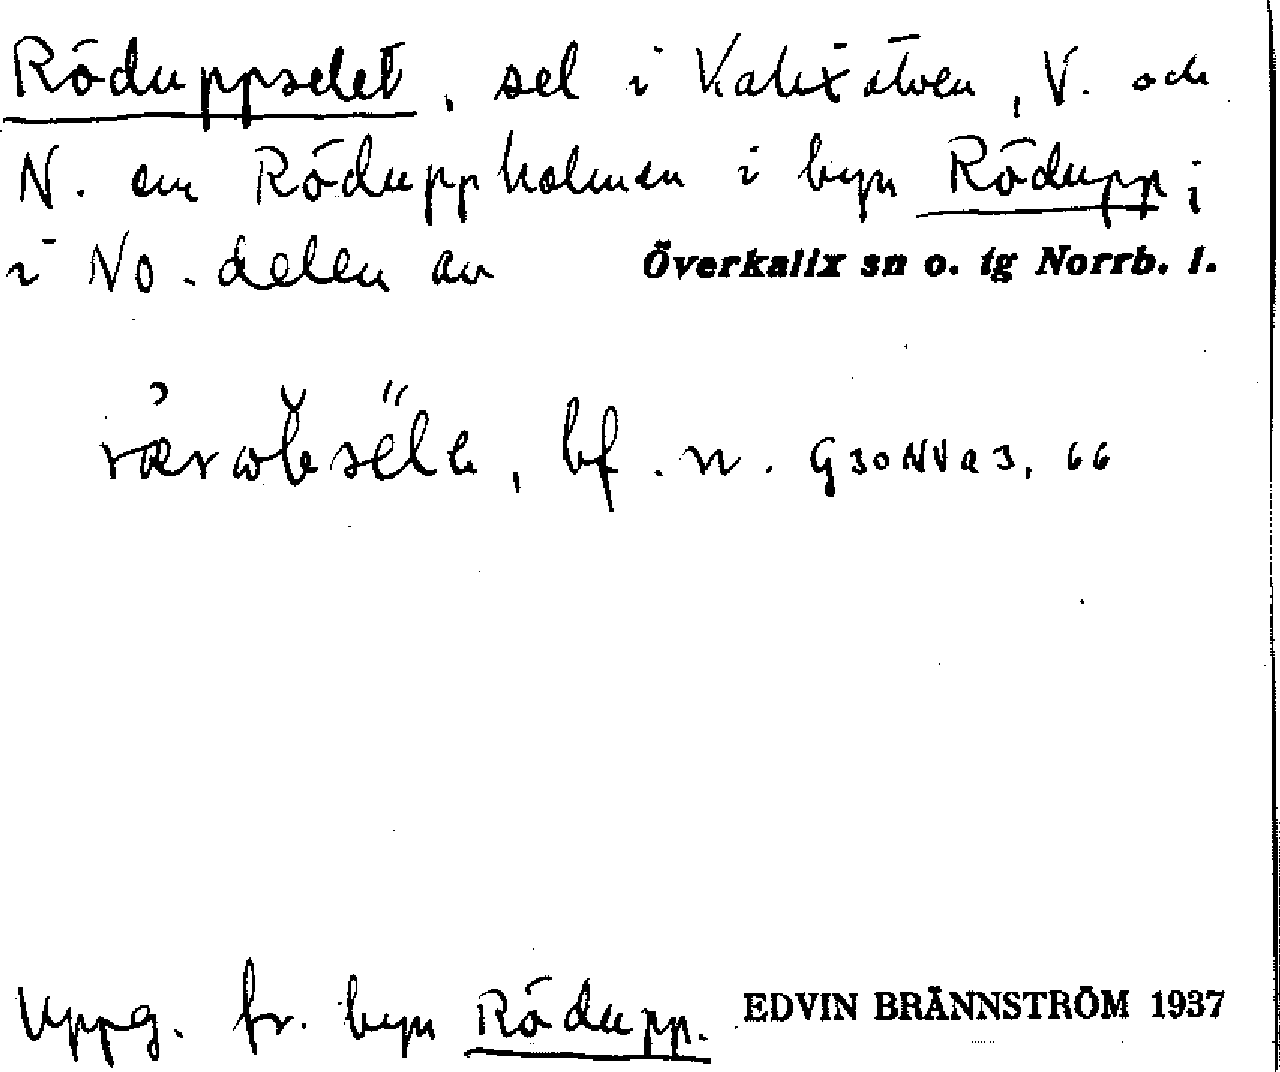 Röduppselet, sel i Kalixälven, V. och
N. om Röduppholmen i byn Rödupp i
i No. delen av Överkalix sn o. tg Norrb. l.
bf. n. G30NVa3, 66
Uppg. fr. byn Rödupp. EDVIN BRÄNNSTRÖM 1937